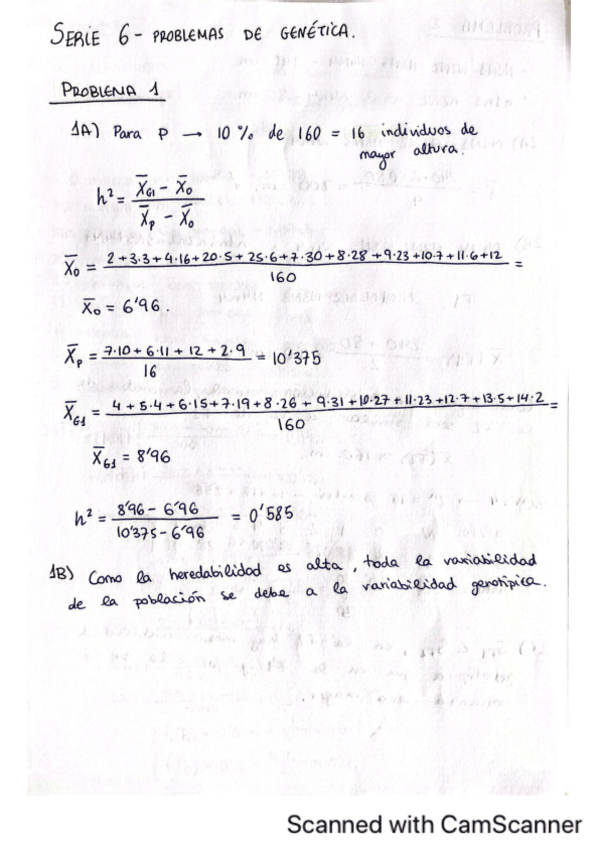 SERIE 6 - PROBLEMAS DE GENÉTICA.
PROBLEMA 1
1A) Para P → 10 % de 160 = 16 individuos de
mayor altura.
h² = X̄G1 - X̄0 / X̄p - X̄0
X̄0 = 2+3·3+4·16+20·5+25·6+7·30+8·28+9·23+10·7+11·6+12 / 160 =
X̄0 = 6'96.
X̄p = 7·10+6·11+12+2·9 / 16 = 10'375
X̄G1 = 4+5·4+6·15+7·19+8·26+9·31+10·27+11·23+12·7+13·5+14·2 / 160 =
X̄G1 = 8'96
h² = 8'96 - 6'96 / 10'375 - 6'96 = 0'585
1B) Como la heredabilidad es alta, toda la variabilidad
de la población se debe a la variabilidad genotípica.
Scanned with CamScanner